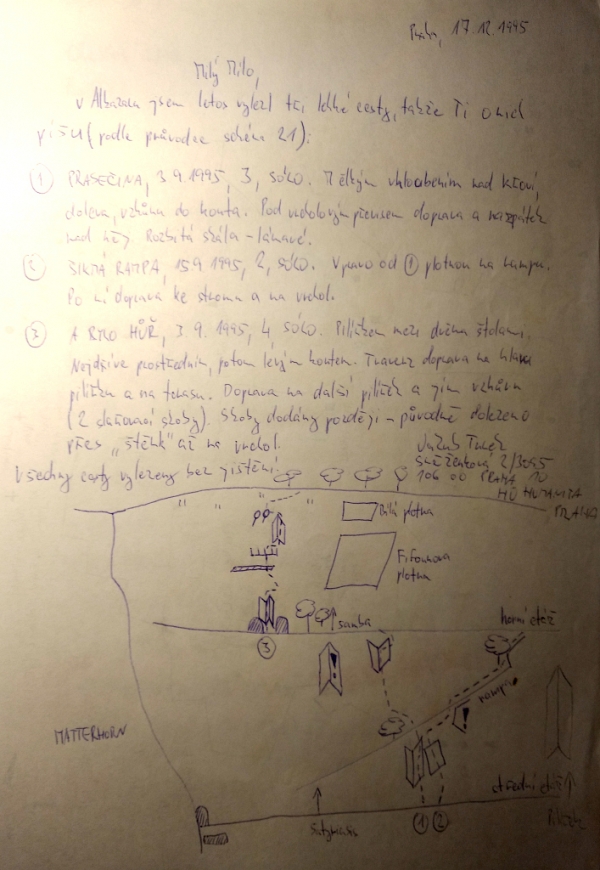 Praha, 17.12.1995
Milý Mílo,
v Alkazaru jsem letos vylezl tři lehké cesty, takže Ti o nich
píšu (podle průvodce schéma 21):
① PRASEČINA, 3.9.1995, 3, SÓLO. Mělkým vhloubením nad křoví,
doleva, vzhůru do kouta. Pod vrcholovým převisem doprava a nazpátek
nad něj. Rozbitá skála - lámavé.
2 ŠIKMÁ RAMPA, 15.9.1995, 2, SÓLO. Vpravo od ① plotnou na rampu.
Po ní doprava ke stromu a na vrchol.
③ A BYLO HŮŘ, 3.9.1995, 4, SÓLO. Pilířkem mezi dvěma štolami.
Nejdříve prostředním, potom levým koutem. Traverz doprava na hlavu
pilířku a na terasu. Doprava na další pilířek a jím vzhůru
(2 slaňovací skoby). Skoby dodány později - původně dolezeno
přes "štěnk" až na vrchol.
Všechny cesty vylezeny bez jištění.
2/3095
106 00 PRAHA 10
HRANA
Bílá plotna
Fifounova
plotna
③
horní etáž
rampa
MATTERHORN
střední etáž
① ②
Pilířek